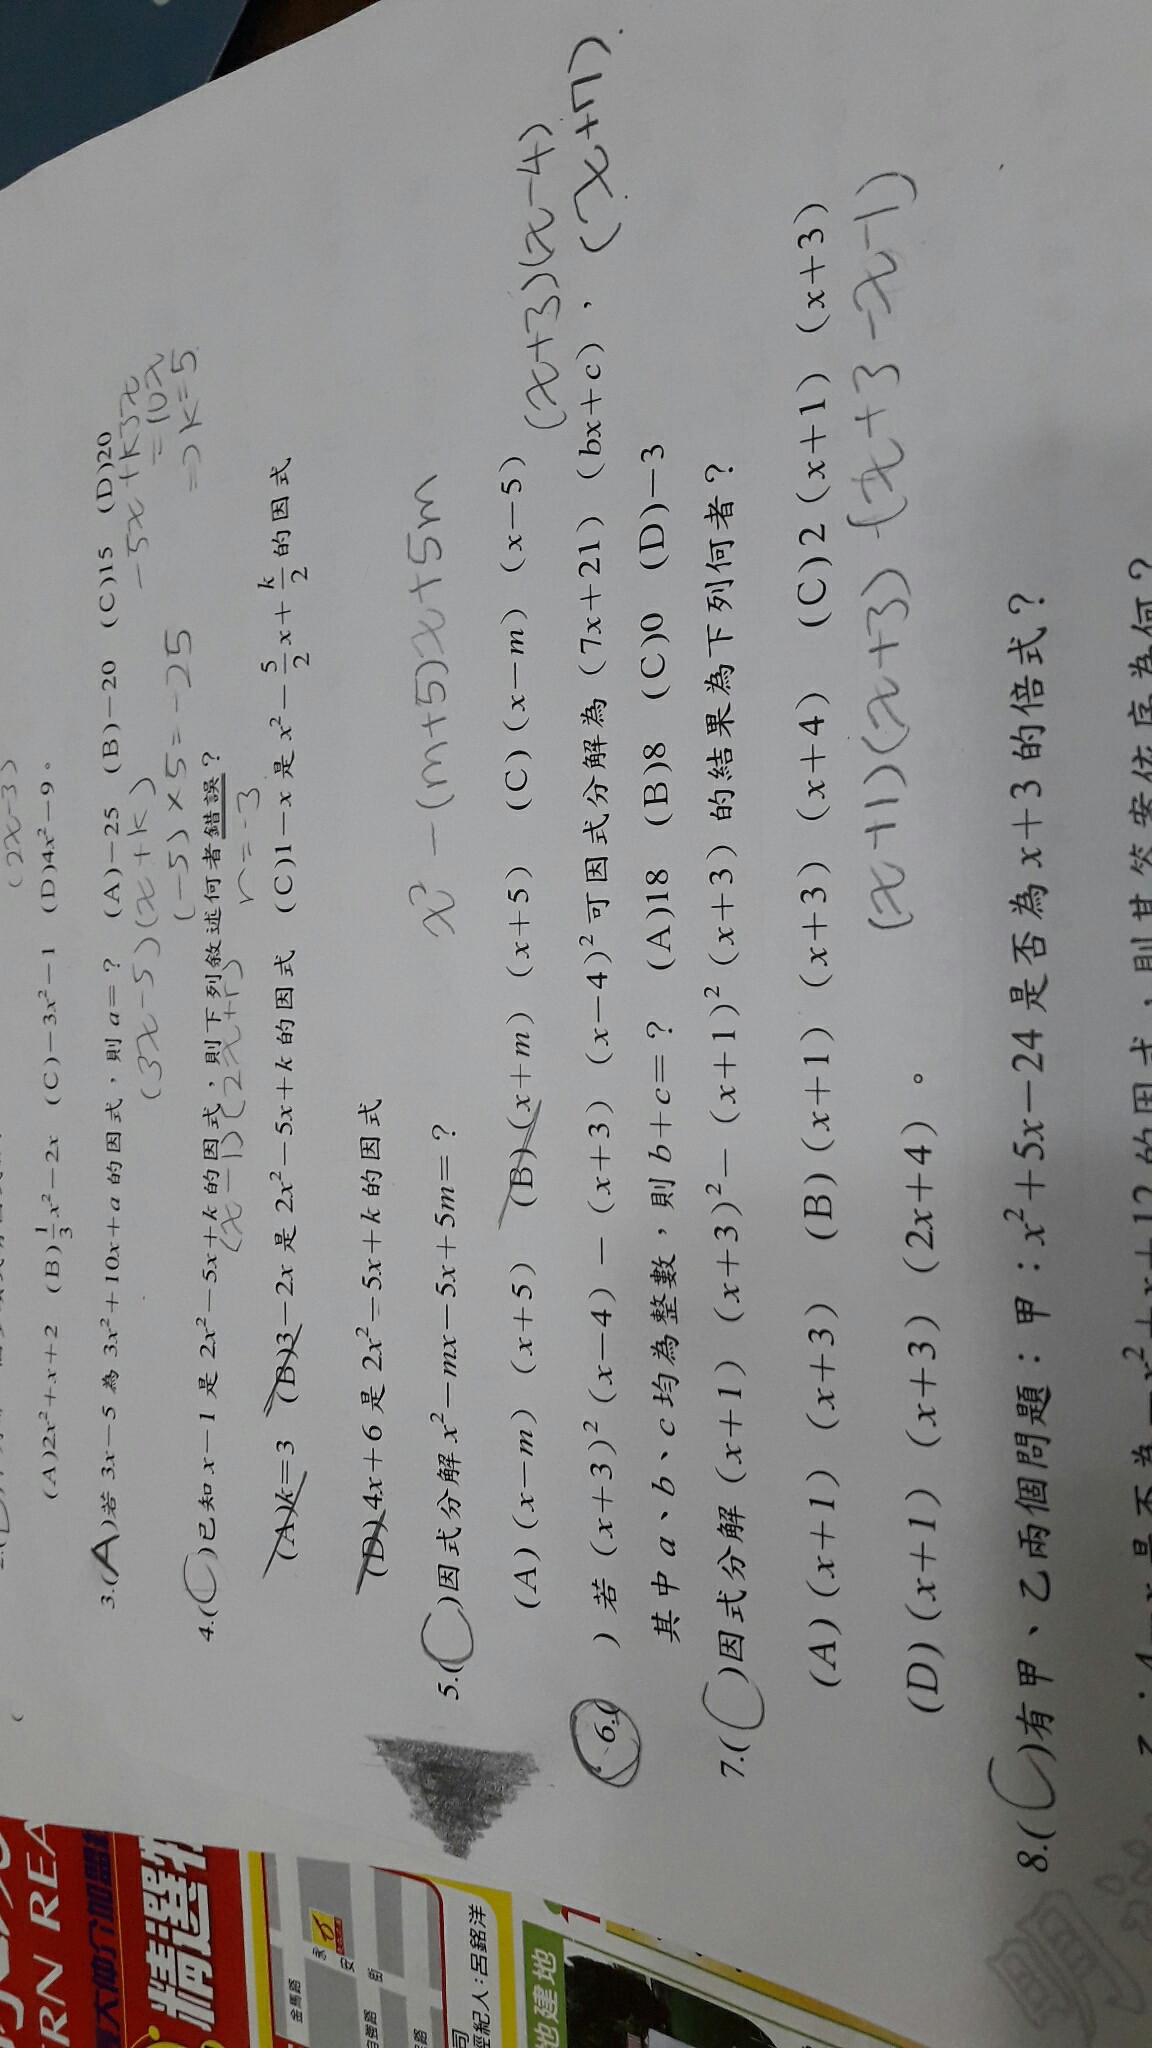 (2x-3)
(A)2x²+x+2 (B)1/3x²-2x (C)-3x²-1 (D)4x²-9。
3.(A)若3x-5為3x²+10x+a的因式,則a=? (A)-25 (B)-20 (C)15 (D)20
(3x-5)(x+k) -5x+k3x
(-5)×5=-25 =10x
⇒k=5
4.(C)已知x-1是2x²-5x+k的因式,則下列敘述何者錯誤?
(x-1)(2x+r) r=-3
(A)k=3 (B)3-2x是2x²-5x+k的因式 (C)1-x是x²-5/2x+k/2的因式
(D)4x+6是2x²-5x+k的因式
5.(C)因式分解x²-mx-5x+5m=?
x²-(m+5)x+5m
(A)(x-m)(x+5) (B)(x+m)(x+5) (C)(x-m)(x-5)
(x+3)(x-4)
6.( )若(x+3)²(x-4)-(x+3)(x-4)²可因式分解為(7x+21)(bx+c),
(x+7).
其中a、b、c均為整數,則b+c=? (A)18 (B)8 (C)0 (D)-3
7.(C)因式分解(x+1)(x+3)²-(x+1)²(x+3)的結果為下列何者?
(A)(x+1)(x+3) (B)(x+1)(x+3)(x+4) (C)2(x+1)(x+3)
(x+1)(x+3)(x+3-x-1)
(D)(x+1)(x+3)(2x+4)。
8.(C)有甲、乙兩個問題:甲:x²+5x-24是否為x+3的倍式?
乙:4-x是否為-x²+x+12的因式,則其答案依序為何?
精選
RN REA
金馬路
永安街
自強路
經紀人:呂銘洋
地建地
1